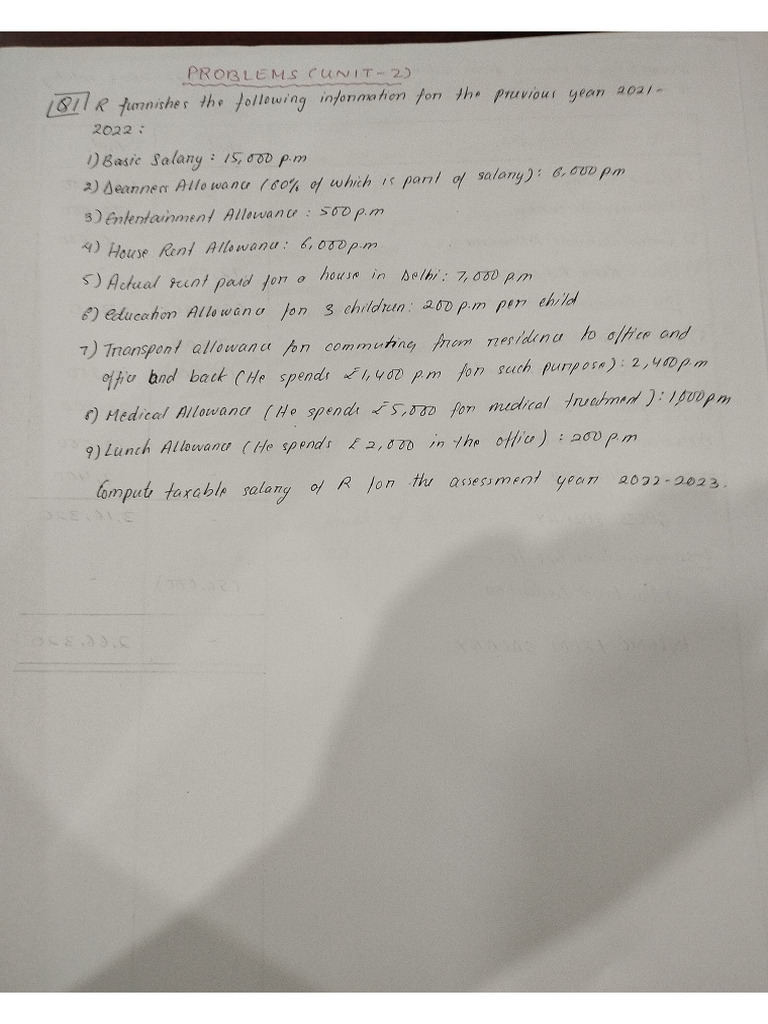 PROBLEMS (UNIT-2)
Q1 R furnishes the following information for the previous year 2021-
2022:
1) Basic Salary: 15,000 p.m
2) Deanness Allowance (60% of which is part of salary): 6,000 pm
3) Entertainment Allowance: 500 p.m
4) House Rent Allowance: 6,000 p.m
5) Actual rent paid for a house in Delhi: 7,000 p.m
6) Education Allowance for 3 children: 200 p.m per child
7) Transport allowance for commuting from residence to office and
office and back (He spends ₤1,400 p.m for such purpose): 2,400 p.m
8) Medical Allowance (He spends ₤5,000 for medical treatment): 1,000 pm
9) Lunch Allowance (He spends ₤2,000 in the office): 200 p.m
Compute taxable salary of R for the assessment year 2022-2023.
3,16,320
(50,000)
2,66,320